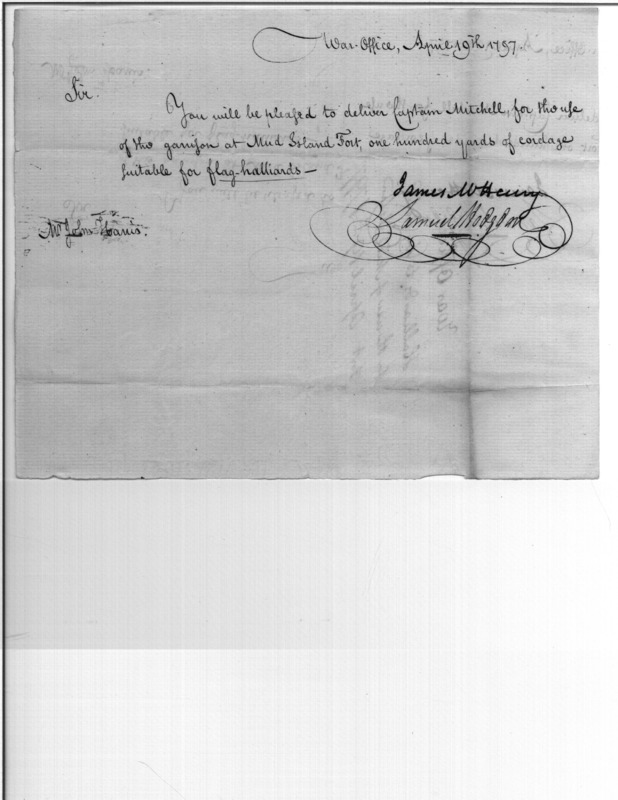 War-Office, April 19th 1797.
Sir.
You will be pleased to deliver Captain Mitchell, for the use
of the garrison at Mud Island Fort, one hundred yards of cordage
suitable for flag-halliards—
James McHenry
Samuel Hodgdon
Mr John Harris.